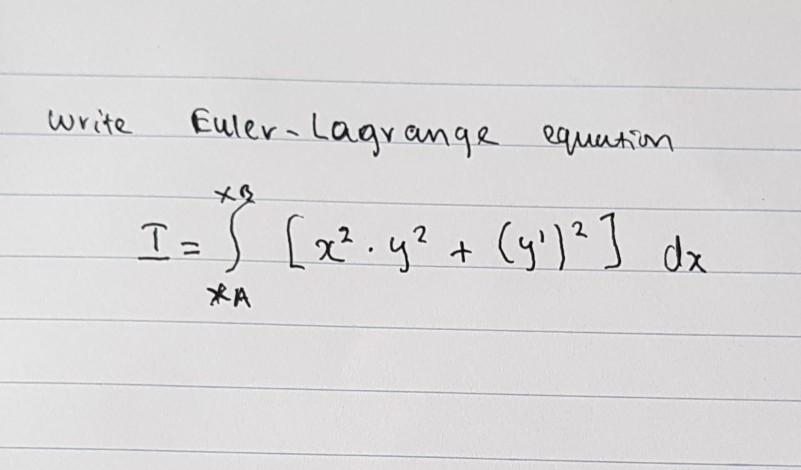 Write Euler-Lagrange equation
xB
I = ∫ [x² · y² + (y')²] dx
xA